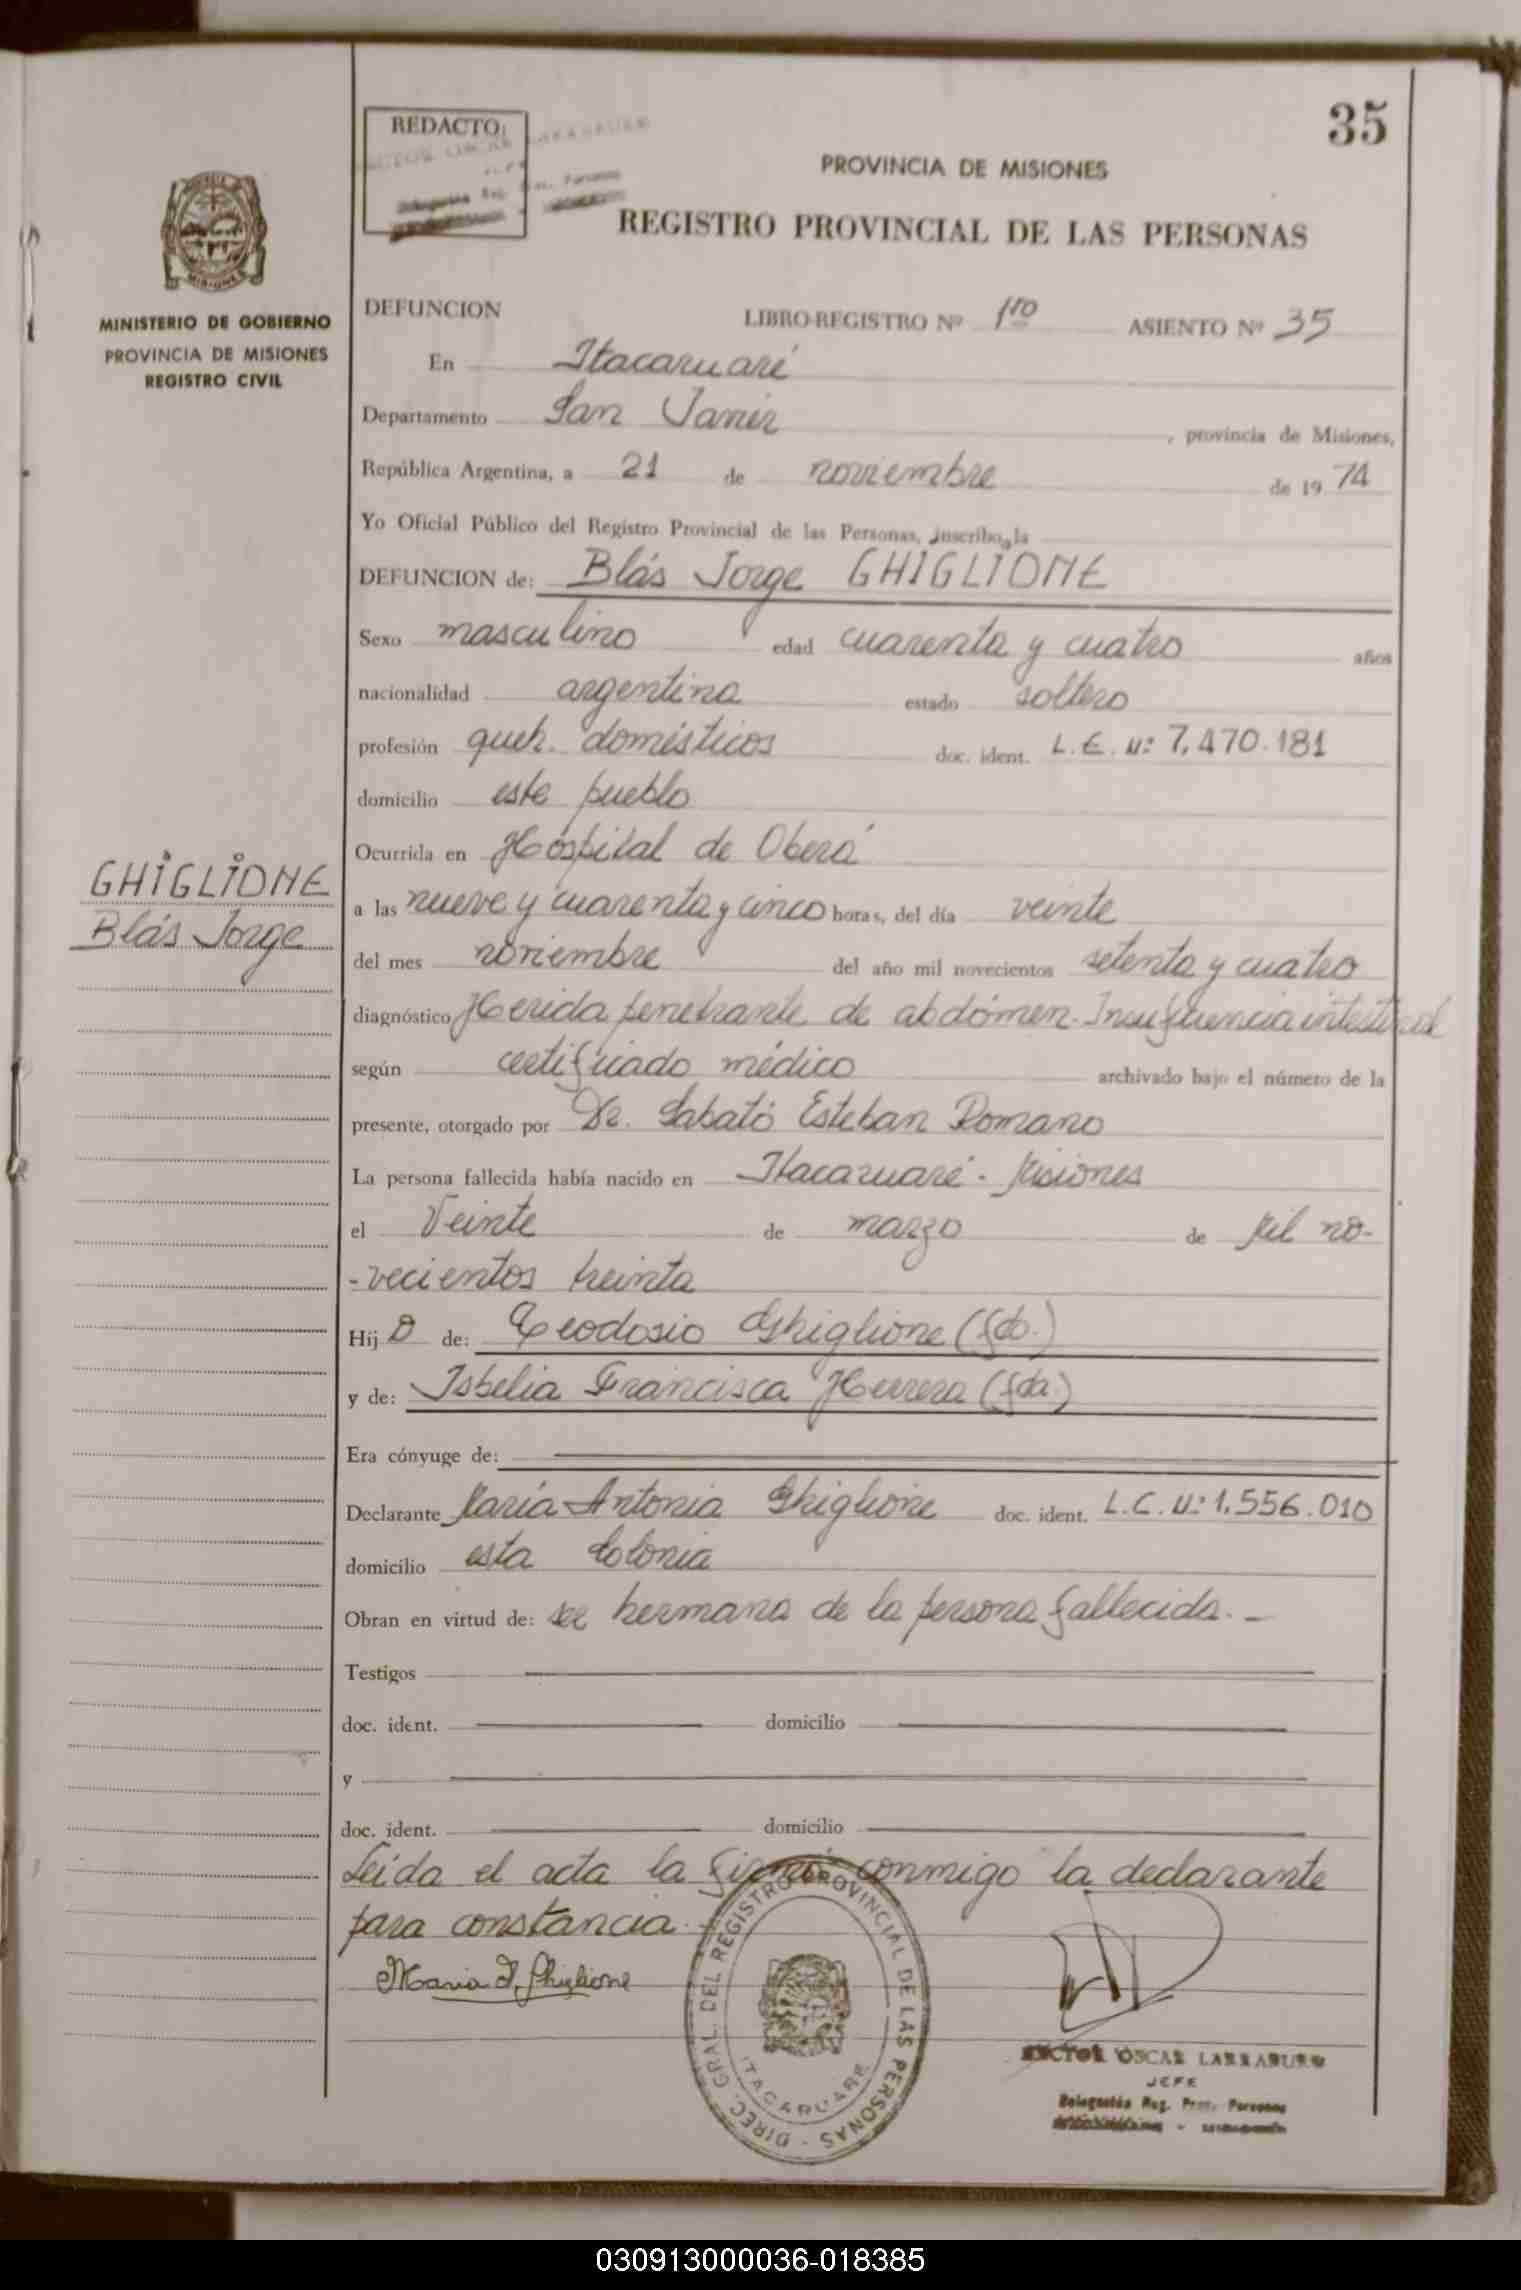 35
REDACTO:
HECTOR OSCAR LARRABURU
JEFE
Delegación Reg. Prov. Personas
PROVINCIA DE MISIONES
REGISTRO PROVINCIAL DE LAS PERSONAS
MINISTERIO DE GOBIERNO
PROVINCIA DE MISIONES
REGISTRO CIVIL
DEFUNCION LIBRO-REGISTRO Nº 1ro ASIENTO Nº 35
En Itacaruaré
Departamento San Javier, provincia de Misiones,
República Argentina, a 21 de noviembre de 1974
Yo Oficial Público del Registro Provincial de las Personas, inscribo la
DEFUNCION de: Blás Jorge GHIGLIONE
Sexo masculino edad cuarenta y cuatro años
nacionalidad argentina estado soltero
profesión queh. domésticos doc. ident. L.E. Nº 7.470.181
domicilio este pueblo
Ocurrida en Hospital de Oberá
GHIGLIONE
Blás Jorge
a las nueve y cuarenta y cinco horas, del día veinte
del mes noviembre del año mil novecientos setenta y cuatro
diagnóstico Herida penetrante de abdómen. Insuficiencia intestinal
según certificado médico archivado bajo el número de la
presente, otorgado por Dr. Sabató Esteban Romano
La persona fallecida había nacido en Itacaruaré - Misiones
el Veinte de marzo de Mil no-
-vecientos treinta
Hijo de: Teodosio Ghiglione (fdo.)
y de: Isbelia Francisca Herrera (fda.)
Era cónyuge de:
Declarante María Antonia Ghiglione doc. ident. L.C. Nº 1.556.010
domicilio esta Colonia
Obran en virtud de: ser hermana de la persona fallecida. -
Testigos
doc. ident. domicilio
y
doc. ident. domicilio
Leída el acta la firmó conmigo la declarante
para constancia.
Maria A. Ghiglione
DIREC. GRAL. DEL REGISTRO PROVINCIAL DE LAS PERSONAS -
ITACARUARE
HECTOR OSCAR LARRABURU
JEFE
Delegación Reg. Prov. Personas
030913000036-018385